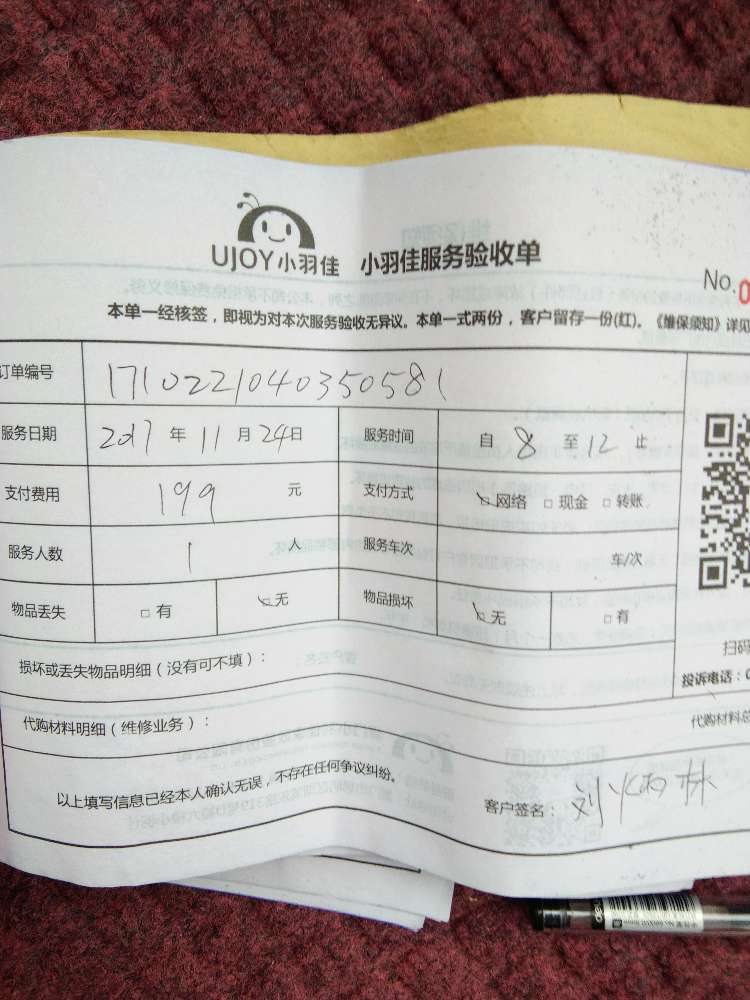 UJOY小羽佳 小羽佳服务验收单
No.0
本单一经核签，即视为对本次服务验收无异议。本单一式两份，客户留存一份(红)。《维保须知》详见
订单编号 1710221040350581
服务日期 2017 年 11 月 24 日 服务时间 自 8 至 12 止
支付费用 199 元 支付方式 网络 □ 现金 □ 转账
服务人数 1 人 服务车次 车/次
物品丢失 □ 有 无 物品损坏 无 □ 有
扫码
损坏或丢失物品明细（没有可不填）：
投诉电话：0
代购材料明细（维修业务）：
代购材料总
以上填写信息已经本人确认无误，不存在任何争议纠纷。
客户签名： 刘